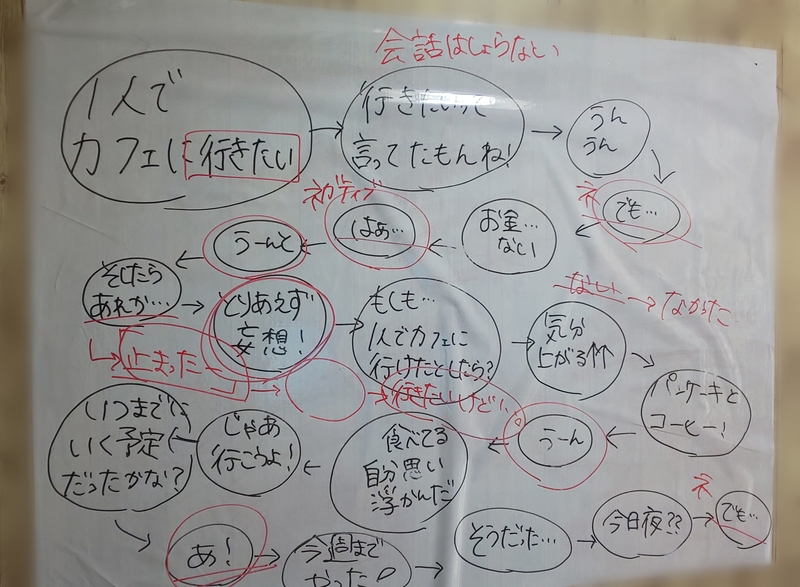 会話はしょらない
1人で
カフェに行きたい
行きたいって
言ってたもんね!
うん
うん
ネ
でも…
お金…
ない
ネガティブ
はぁ…
うーんと
そしたら
あれか…
止まった
とりあえず
妄想!
もしも…
1人でカフェに
行けたとしたら?
行きたいけど…。
気分
上がる↑↑
ない→なかった
パンケーキと
コーヒー!
うーん
食べてる
自分思い
浮かんだ
じゃあ
行こうよ!
いつまでに
いく予定
だったかな?
あ!
今週まで
やった
そうだった…
今日夜??
ネ
でも…